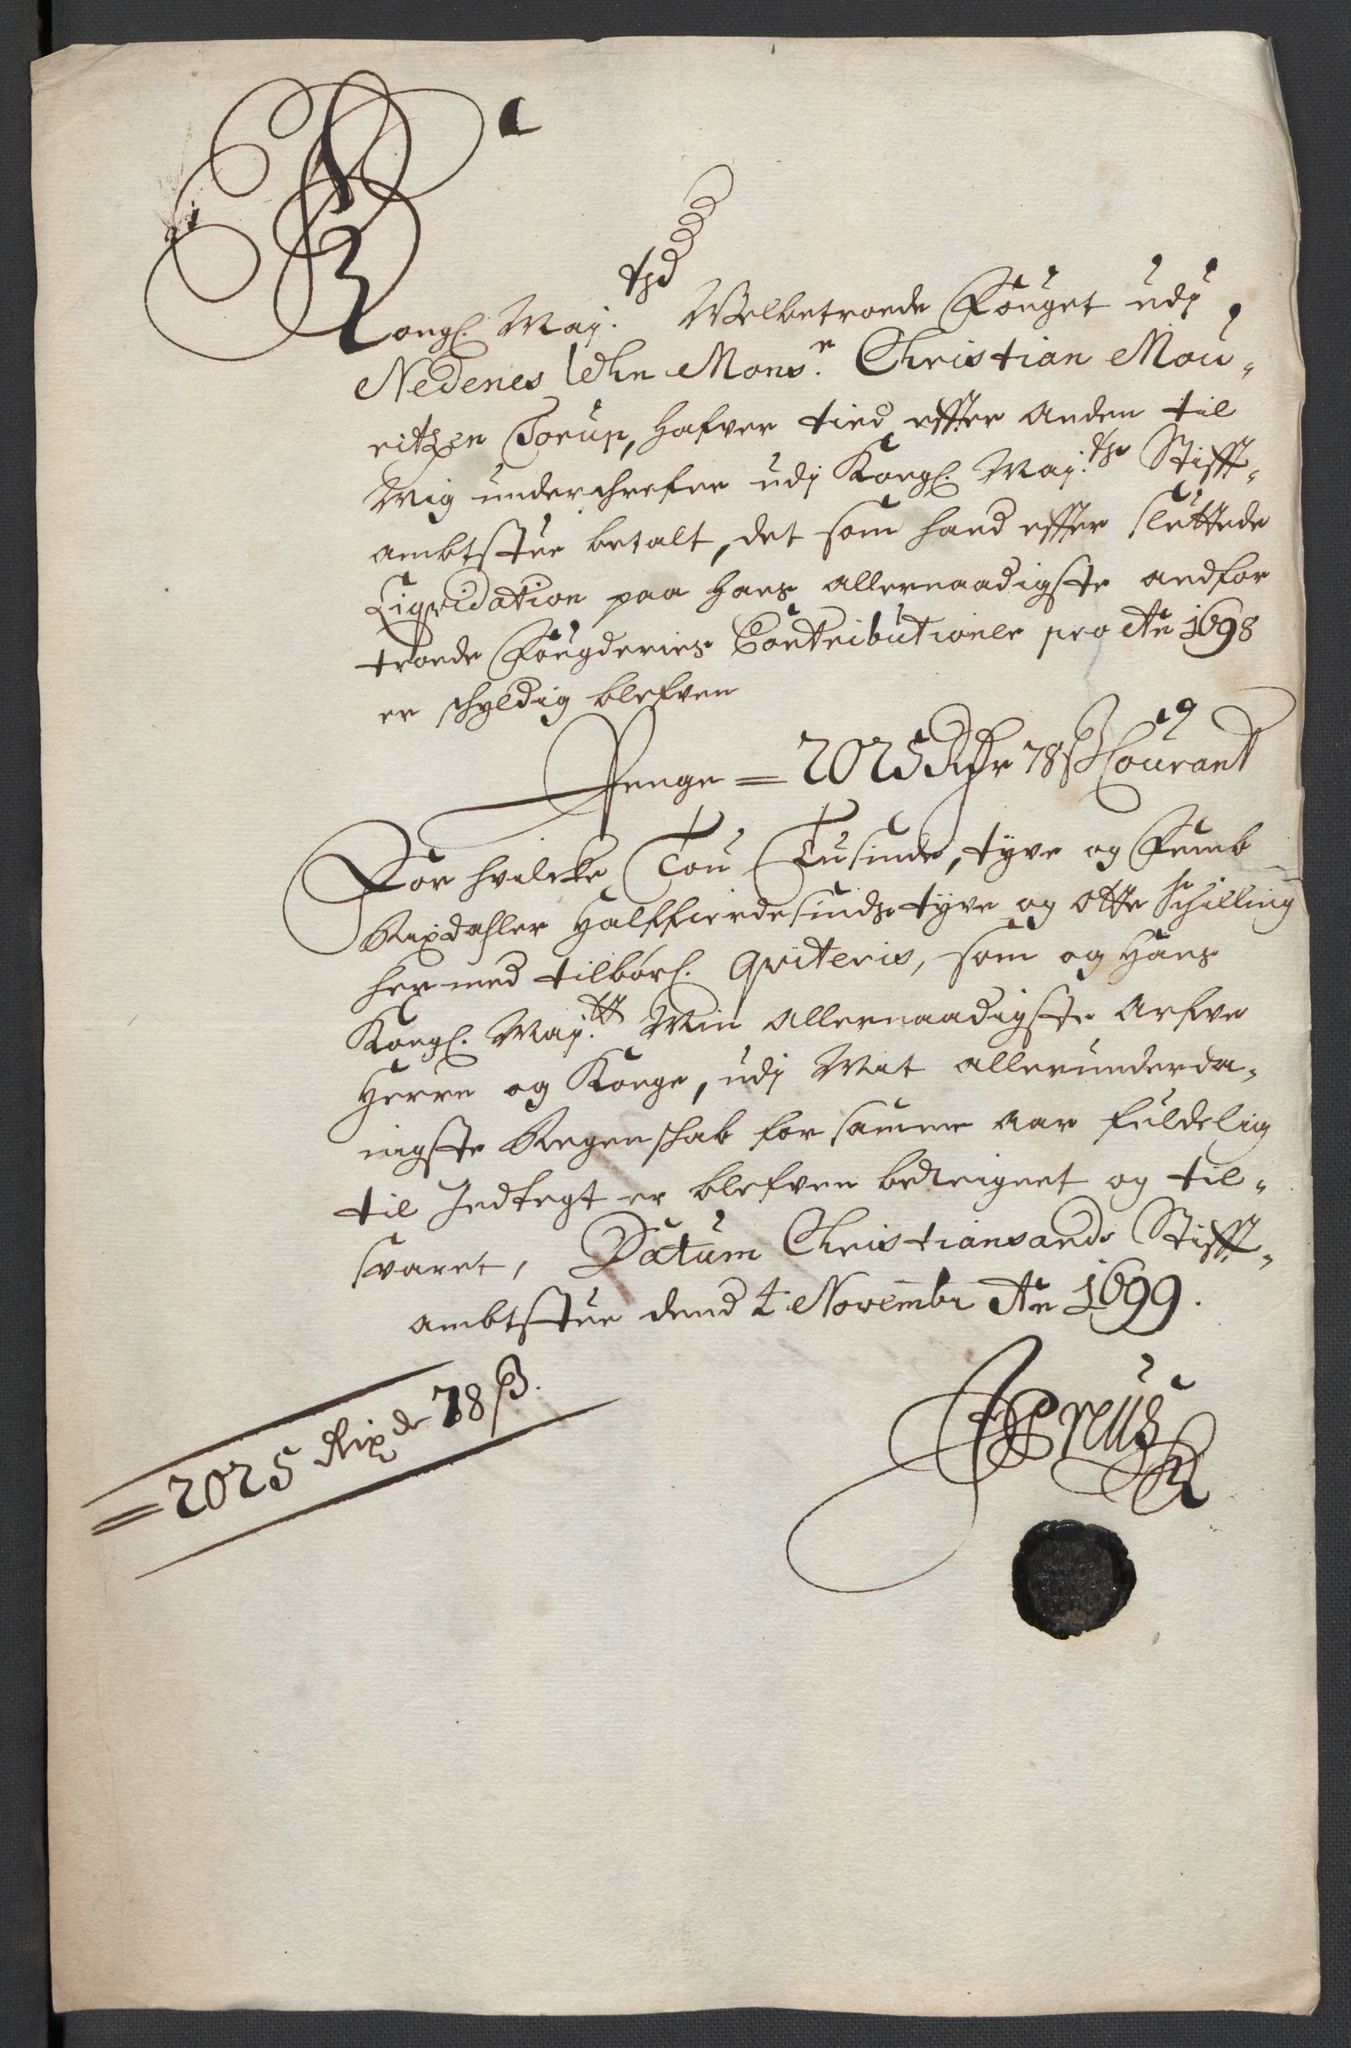 Kongl. May.tz Velbetroede Fouget udj
Nedenes lehn Mons.r Christian Mou-
ritzen Torup, hafver tied effter anden til
Mig underschrefne udj Kongl. May.tz Stifft-
ambtstue betalt, det som hand effter sluttede
Liqvidation paa hans allernaadigste anfor
troede Fougderies Contributioner pro Ao 1698
er schyldig blefven
Penge = 2025 Rdr 78 ß Courant
For hvilcke Tou Tusinde, tyve og Femb
Rixdahler Halffierdesindstyve og otte Schilling
hermed tilbørl. qviteris, som og Hans
Kongl. May.tt Min allernaadigste Arfve
Herre og Konge, udj Mit allerunderda-
nigste Regenschab for samme Aar fuldelig
til Indtegt er blefven bereignet og til-
svaret, Datum Christiansands Stifft-
ambtstue dend 4 Novembr Ao 1699.
= 2025 Rixdr 78 ß.